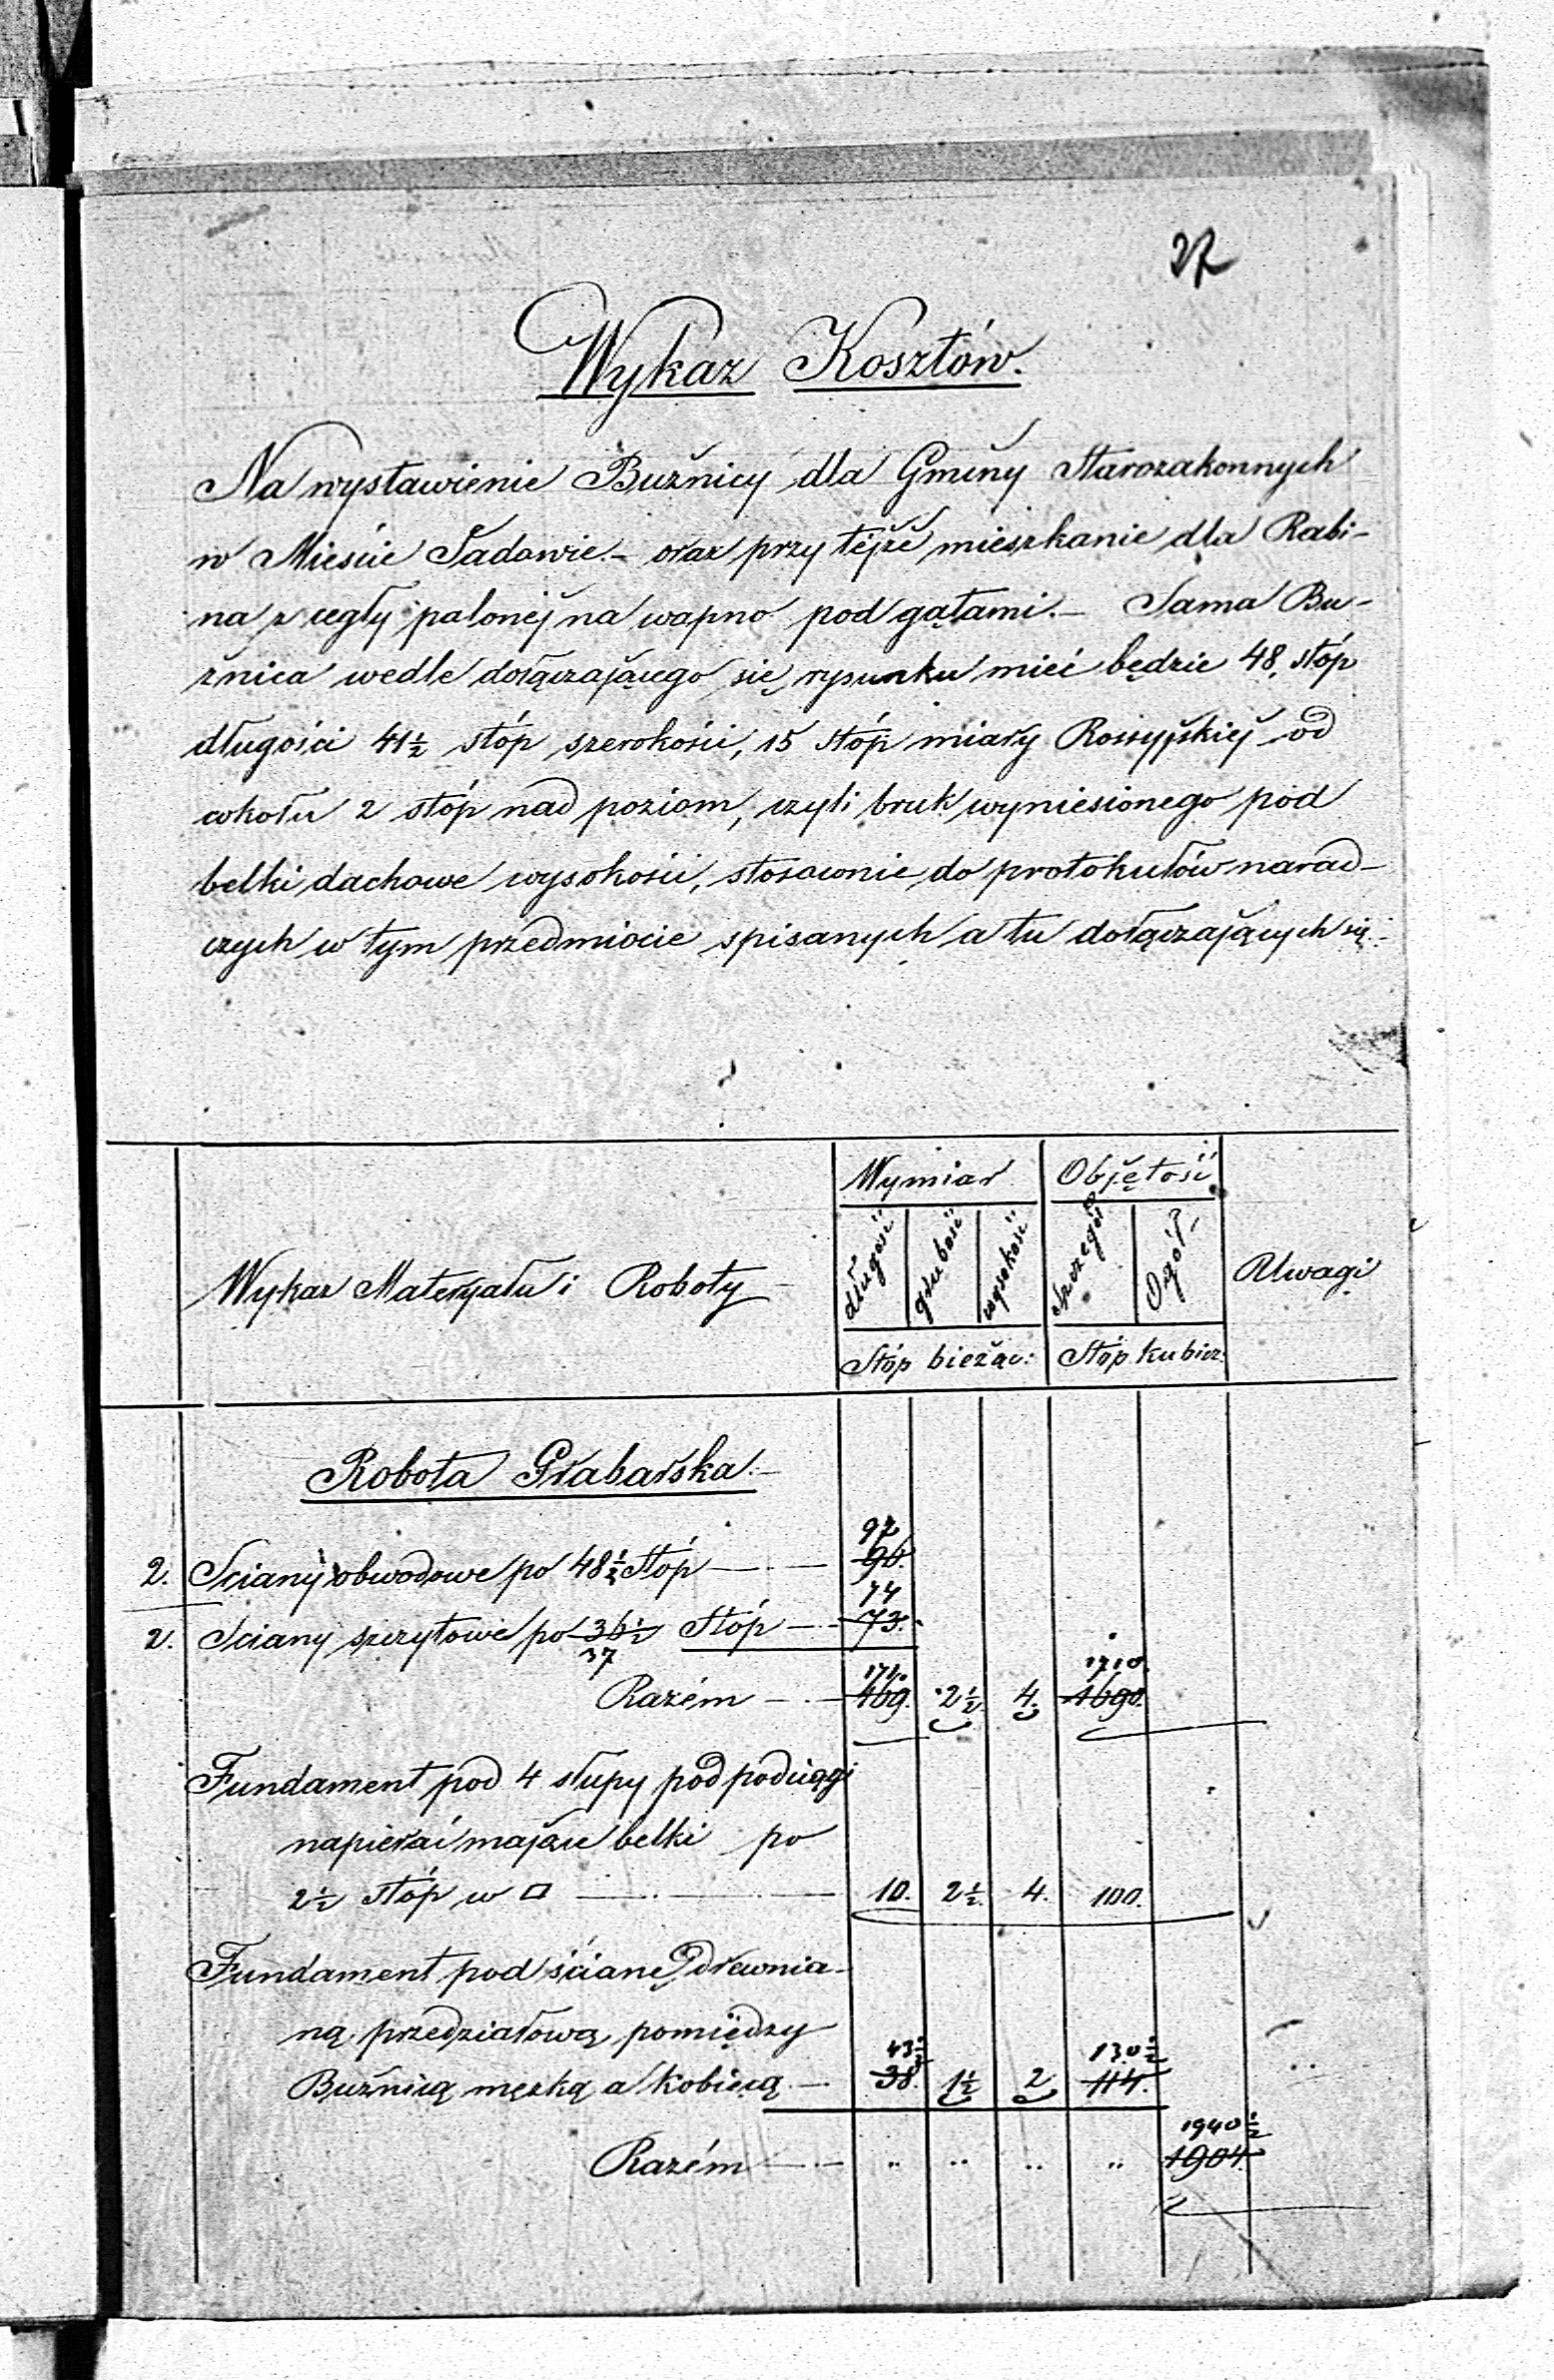 27
Wykaz Kosztów.
Na wystawienie Bużnicy dla Gminy Starozakonnych
w Mieście Tadowie.- oraz przy tejże mieszkanie dla Rabi-
na z cegły palonej na wapno pod gątami.- Sama Bu-
żnica wedle dołączającego się rysunku mieć będzie 48 stóp
długości 41½ stóp szerokości, 15 stóp miary Rossyjskiej od
cokołu 2 stóp nad poziom, czyli bruk wyniesionego pod
belki dachowe wysokości, stosownie do protokułów narad-
czych w tym przedmiocie spisanych a tu dołączających się.
Wykaz Materyału i Roboty
Wymiar Objętość Uwagi
długość grubość wysokość szczegół Ogół
Stóp bieżąc: Stóp kubicz:
Robota Grabarska.-
97
2. Sciany obwodowe po 48½ Stóp 96.
74
2. Sciany szczytowe po 36½ Stóp 73.
37
171. 1710.
Razém 169. 2½. 4. 1690.
Fundament pod 4 słupy pod podciągi
napierać mające belki po
2½ stóp w □ 10. 2½. 4. 100.
Fundament pod ścianę drewnia-
ną przedziałową pomiędzy
43½ 130½
Bużnicą męzką a kobiecą 38. 1½ 2 114.
1940½
Razém " " " " 1904.